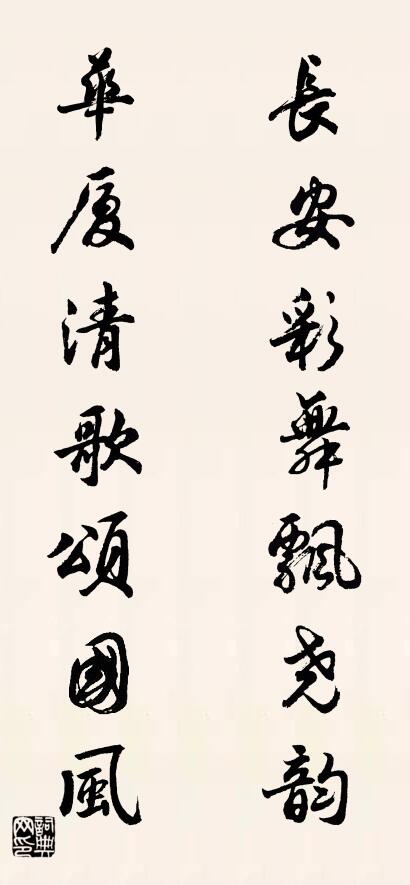 長安彩舞飄尧韵
華厦清歌頌國風
詞典网印